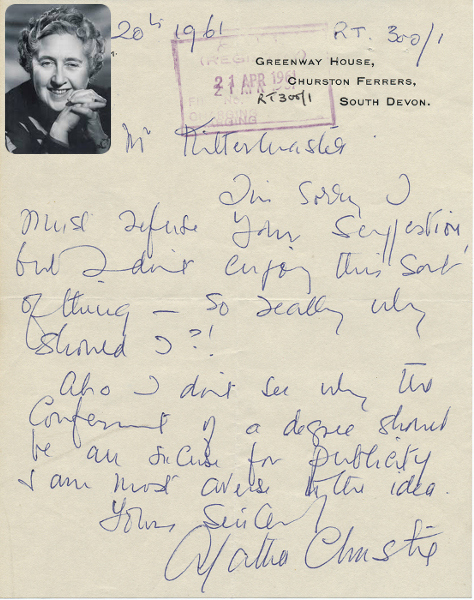 20th 1961
RT. 300/1
21 APR 1961
RT300/1
GREENWAY HOUSE,
CHURSTON FERRERS,
SOUTH DEVON.
Mr Kittermaster
I'm sorry I
must refuse your suggestion
but I don't enjoy this sort
of thing — so really why
should I?!
Also I don't see why the
Conferment of a degree should
be an excuse for publicity
I am most averse to the idea.
Yours Sincerely
Agatha Christie